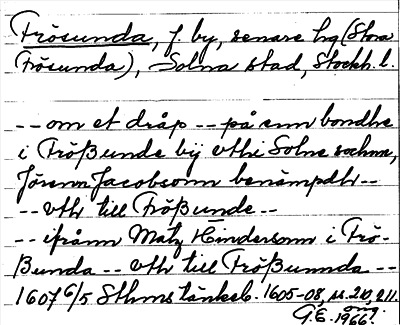 Frösunda, f. by, senare hg (Stora
Frösunda), Solna stad, Stockh. l.
-- om et dråp -- på enn bondhe
i Frößunde bÿ vthi Solne sochnn,
Jörenn Jacobsonn benämpdh --
-- vth till Frößunde --
-- ifrånn Matz Hindersonn i Frö-
ßunda -- vth till Frößunnda --
1607 6/5 Sthms tänkeb. 1605-08, s. 210, 211.
G.E. 1966